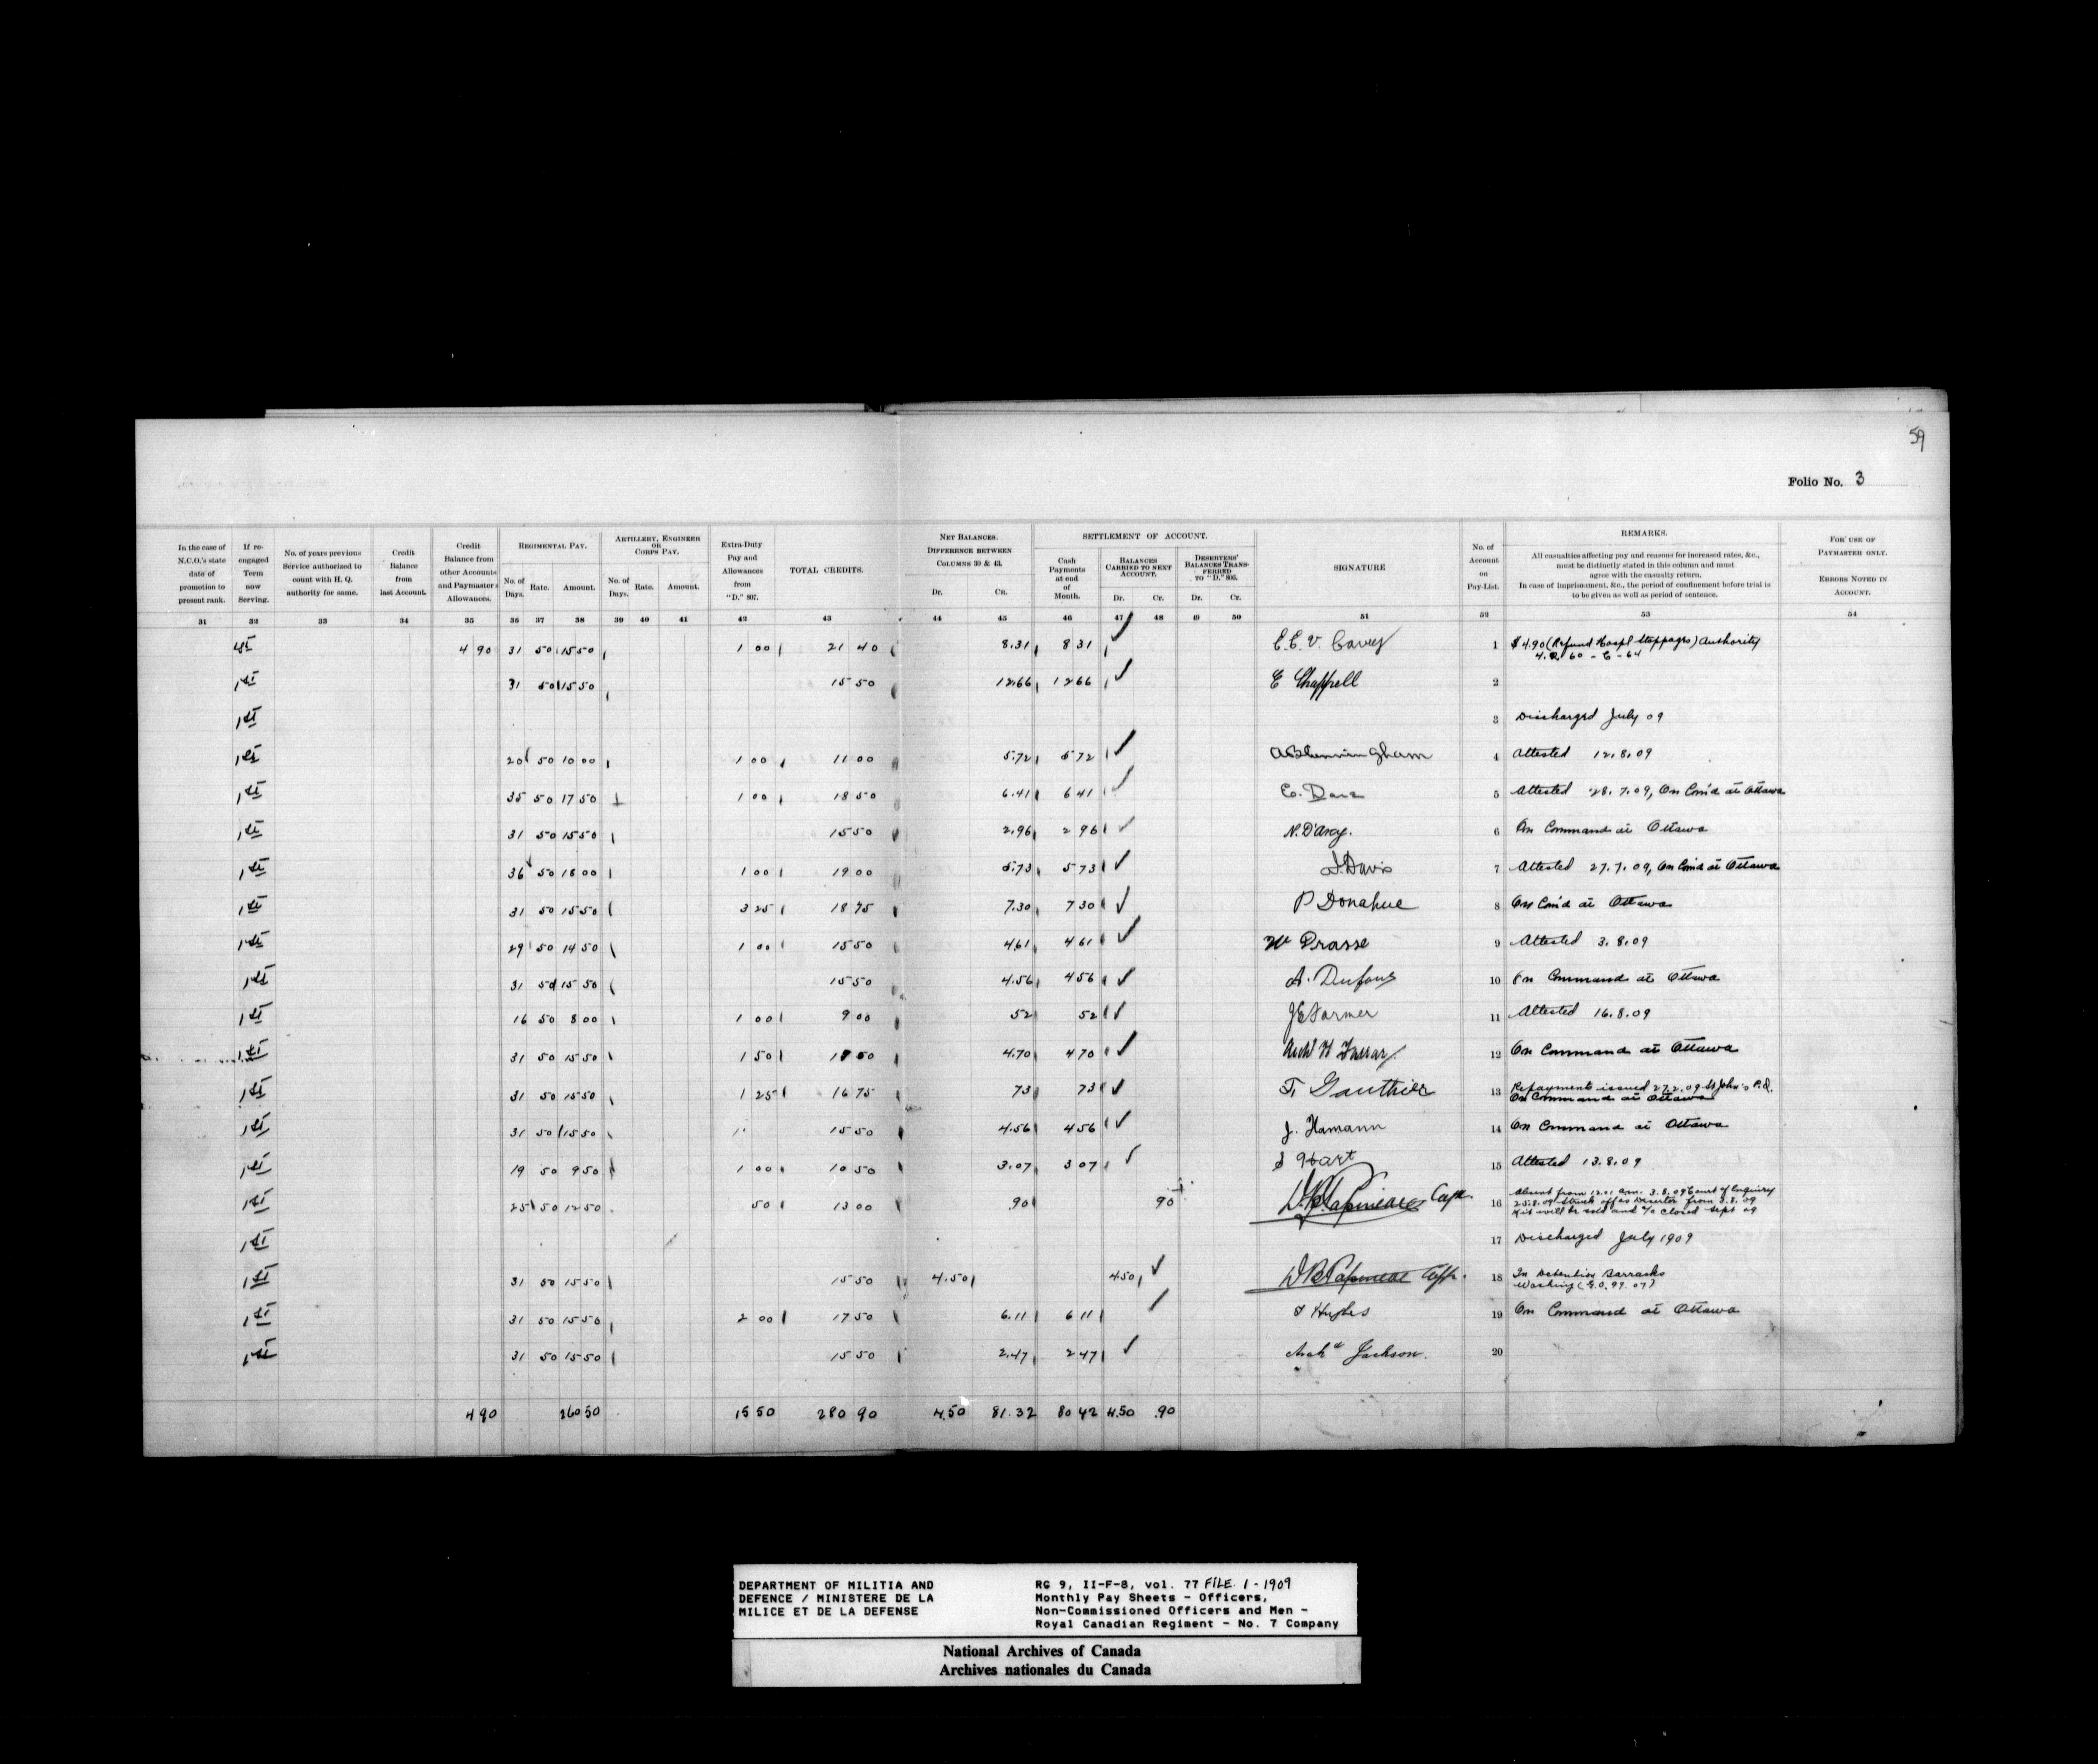 59
Folio No. 3
In the case of N.C.O.'s state date of promotion to present rank.
If re-engaged Term now Serving.
No. of years previous Service authorized to count with H. Q. authority for same.
Credit Balance from last Account.
Credit Balance from other Accounts and Paymasters Allowances.
REGIMENTAL PAY.
No. of Days. Rate. Amount.
ARTILLERY, ENGINEER OR CORPS PAY.
No. of Days. Rate. Amount.
Extra-Duty Pay and Allowances from "D." 807.
TOTAL CREDITS.
NET BALANCES. DIFFERENCE BETWEEN COLUMNS 30 & 43.
Dr. Cr.
SETTLEMENT OF ACCOUNT.
Cash Payments at end of Month.
BALANCES CARRIED TO NEXT ACCOUNT.
Dr. Cr.
DESERTERS' BALANCES TRANSFERRED TO "D." 806.
Dr. Cr.
SIGNATURE
No. of Account on Pay-List.
REMARKS.
All casualties affecting pay and reasons for increased rates, &c., must be distinctly stated in this column and must agree with the casualty return.
In case of imprisonment, &c., the period of confinement before trial is to be given as well as period of sentence.
FOR USE OF PAYMASTER ONLY.
ERRORS NOTED IN ACCOUNT.
31 32 33 34 35 36 37 38 39 40 41 42 43 44 45 46 47 48 49 50 51 52 53 54
1st 4 90 31 50 15 50 1 00 21 40 8.31 8 31 E. E. V. Cavey 1 $4.90 (Refund Hospl Stoppages) Authority
4. R. 60 - C - 64
1st 31 50 15 50 15 50 12.66 12 66 E Chappell 2
1st 3 Discharged July 09
1st 20 50 10 00 1 00 11 00 5.72 5 72 4 Attested 12.8.09
1st 35 50 17 50 1 00 18 50 6.41 6 41 5 Attested 28.7.09, On Com'd at Ottawa
1st 31 50 15 50 15 50 2.96 2 96 N. D'Arcy. 6 On Command at Ottawa
1st 36 50 18 00 1 00 19 00 5.73 5 73 J. Davis 7 Attested 27.7.09, On Com'd at Ottawa
1st 31 50 15 50 3 25 18 75 7.30 7 30 P Donahue 8 On Com'd at Ottawa
1st 29 50 14 50 1 00 15 50 4.61 4 61 W Drasse 9 Attested 3.8.09
1st 31 50 15 50 15 50 4.56 4 56 A. Dufour 10 On Command at Ottawa
1st 16 50 8 00 1 00 9 00 52 52 J E Farmer 11 Attested 16.8.09
1st 31 50 15 50 1 50 17 00 4.70 4 70 12 On Command at Ottawa
1st 31 50 15 50 1 25 16 75 73 73 T. Gauthier 13 Repayments issued 27.2.09 St John's P.Q.
On Command at Ottawa
1st 31 50 15 50 15 50 4.56 4 56 J. Hamann 14 On Command at Ottawa
1st 19 50 9 50 1 00 10 50 3.07 3 07 S Hart 15 Attested 13.8.09
1st 25 50 12 50 50 13 00 .90 90 Papineau Capt. 16 Absent from 12.01 a.m. 3.8.09 Court of Enquiry
25.8.09 Struck off as Deserter from 3.8.09
Kit will be sold and a/c closed Sept 09
1st 17 Discharged July 1909
1st 31 50 15 50 15 50 4.50 4.50 Papineau Capt. 18 In Detention Barracks
Washing (G.O. 99. 07)
1st 31 50 15 50 2 00 17 50 6.11 6 11 Hughes 19 On Command at Ottawa
1st 31 50 15 50 15 50 2.47 2 47 Archd Jackson. 20
4 90 260 50 15 50 280 90 4.50 81.32 80 42 4.50 .90
DEPARTMENT OF MILITIA AND
DEFENCE / MINISTERE DE LA
MILICE ET DE LA DEFENSE
RG 9, II-F-8, vol. 77 FILE. 1-1909
Monthly Pay Sheets - Officers,
Non-Commissioned Officers and Men -
Royal Canadian Regiment - No. 7 Company
National Archives of Canada
Archives nationales du Canada